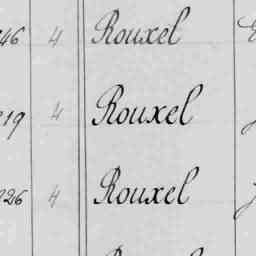 46 4 Rouxel
19 4 Rouxel
226 4 Rouxel